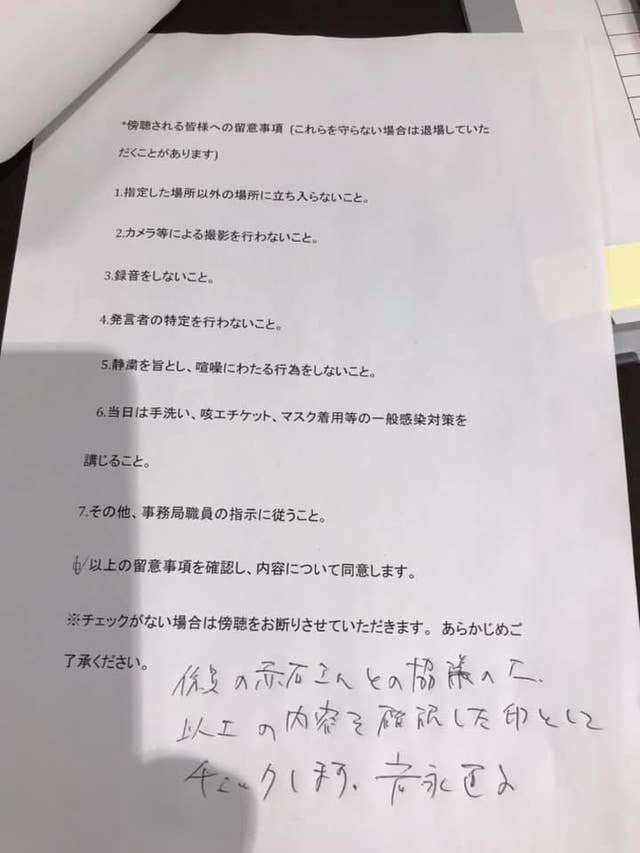 *傍聴される皆様への留意事項 (これらを守らない場合は退場していた
だくことがあります)
1.指定した場所以外の場所に立ち入らないこと。
2.カメラ等による撮影を行わないこと。
3.録音をしないこと。
4.発言者の特定を行わないこと。
5.静粛を旨とし、喧噪にわたる行為をしないこと。
6.当日は手洗い、咳エチケット、マスク着用等の一般感染対策を
講じること。
7.その他、事務局職員の指示に従うこと。
以上の留意事項を確認し、内容について同意します。
※チェックがない場合は傍聴をお断りさせていただきます。あらかじめご
了承ください。
の赤石さんとの協議の上、
以上の内容を確認した印として
チェックします。